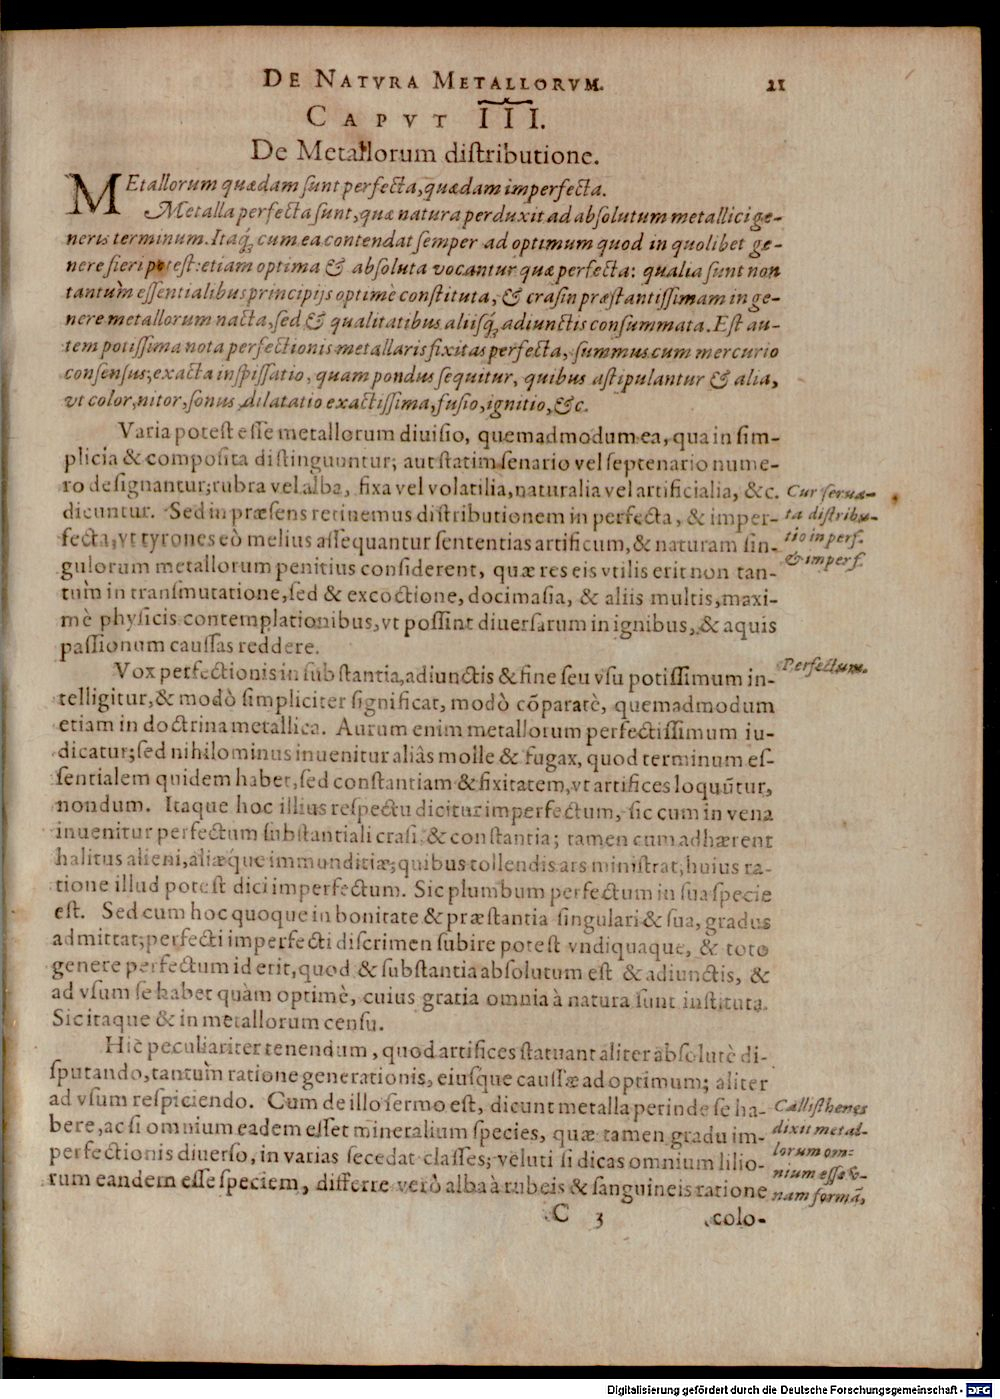 DE NATVRA METALLORVM. 21
CAPVT III.
De Metallorum diſtributione.
MEtallorum quædam ſunt perfecta, quædam imperfecta.
Metalla perfecta ſunt, quæ natura perduxit ad abſolutum metallici ge-
neris terminum. Itaq́; cum ea contendat ſemper ad optimum quod in quolibet ge-
nere fieri poteſt: etiam optima & abſoluta vocantur quæ perfecta: qualia ſunt non
tantùm eſſentialibus principijs optimè conſtituta, & craſin præſtantiſſimam in ge-
nere metallorum nacta, ſed & qualitatibus aliiſq́; adiunctis conſummata. Eſt au-
tem potiſſima nota perfectionis metallaris fixitas perfecta, ſummus cum mercurio
conſenſus, exacta inſpiſſatio, quam pondus ſequitur, quibus aſtipulantur & alia,
vt color, nitor, ſonus, dilatatio exactiſſima, fuſio, ignitio, &c.
Varia poteſt eſſe metallorum diuiſio, quemadmodum ea, qua in ſim-
plicia & compoſita diſtinguuntur; aut ſtatim ſenario vel ſeptenario nume-
ro deſignantur; rubra vel alba, fixa vel volatilia, naturalia vel artificialia, &c.
dicuntur. Sed in præſens retinemus diſtributionem in perfecta, & imper-
fecta, vt tyrones eò melius aſſequantur ſententias artificum, & naturam ſin-
gulorum metallorum penitius conſiderent, quæ res eis vtilis erit non tan-
tùm in tranſmutatione, ſed & excoctione, docimaſia, & aliis multis, maxi-
mè phyſicis contemplationibus, vt poſſint diuerſarum in ignibus, & aquis
paſſionum cauſſas reddere.
Cur ſerua-
ta diſtribu-
tio in perf.
& imperf.
Vox perfectionis in ſubſtantia, adiunctis & fine ſeu vſu potiſſimum in-
telligitur, & modò ſimpliciter ſignificat, modò cōparatè, quemadmodum
etiam in doctrina metallica. Aurum enim metallorum perfectiſſimum iu-
dicatur; ſed nihilominus inuenitur aliàs molle & fugax, quod terminum eſ-
ſentialem quidem habet, ſed conſtantiam & fixitatem, vt artifices loquūtur,
nondum. Itaque hoc illius reſpectu dicitur imperfectum, ſic cum in vena
inuenitur perfectum ſubſtantiali craſi & conſtantia; tamen cum adhærent
halitus alieni, aliæque immunditiæ; quibus tollendis ars miniſtrat, huius ra-
tione illud poteſt dici imperfectum. Sic plumbum perfectum in ſua ſpecie
eſt. Sed cum hoc quoque in bonitate & præſtantia ſingulari & ſua, gradus
admittat; perfecti imperfecti diſcrimen ſubire poteſt vndiquaque, & toto
genere perfectum id erit, quod & ſubſtantia abſolutum eſt & adiunctis, &
ad vſum ſe habet quàm optimè, cuius gratia omnia à natura ſunt inſtituta.
Sic itaque & in metallorum cenſu.
Perfectum.
Hîc peculiariter tenendum, quod artifices ſtatuant aliter abſolutè di-
ſputando, tantùm ratione generationis, eiuſque cauſſæ ad optimum; aliter
ad vſum reſpiciendo. Cum de illo ſermo eſt, dicunt metalla perinde ſe ha-
bere, ac ſi omnium eadem eſſet mineralium ſpecies, quæ tamen gradu im-
perfectionis diuerſo, in varias ſecedat claſſes; veluti ſi dicas omnium lilio-
rum eandem eſſe ſpeciem, differre verò alba à rubeis & ſanguineis ratione
Calliſthenes
dixit metal-
lorum om-
nium eſſe v-
nam formā,
C 3 colo-
Digitalisierung gefördert durch die Deutsche Forschungsgemeinschaft - DFG